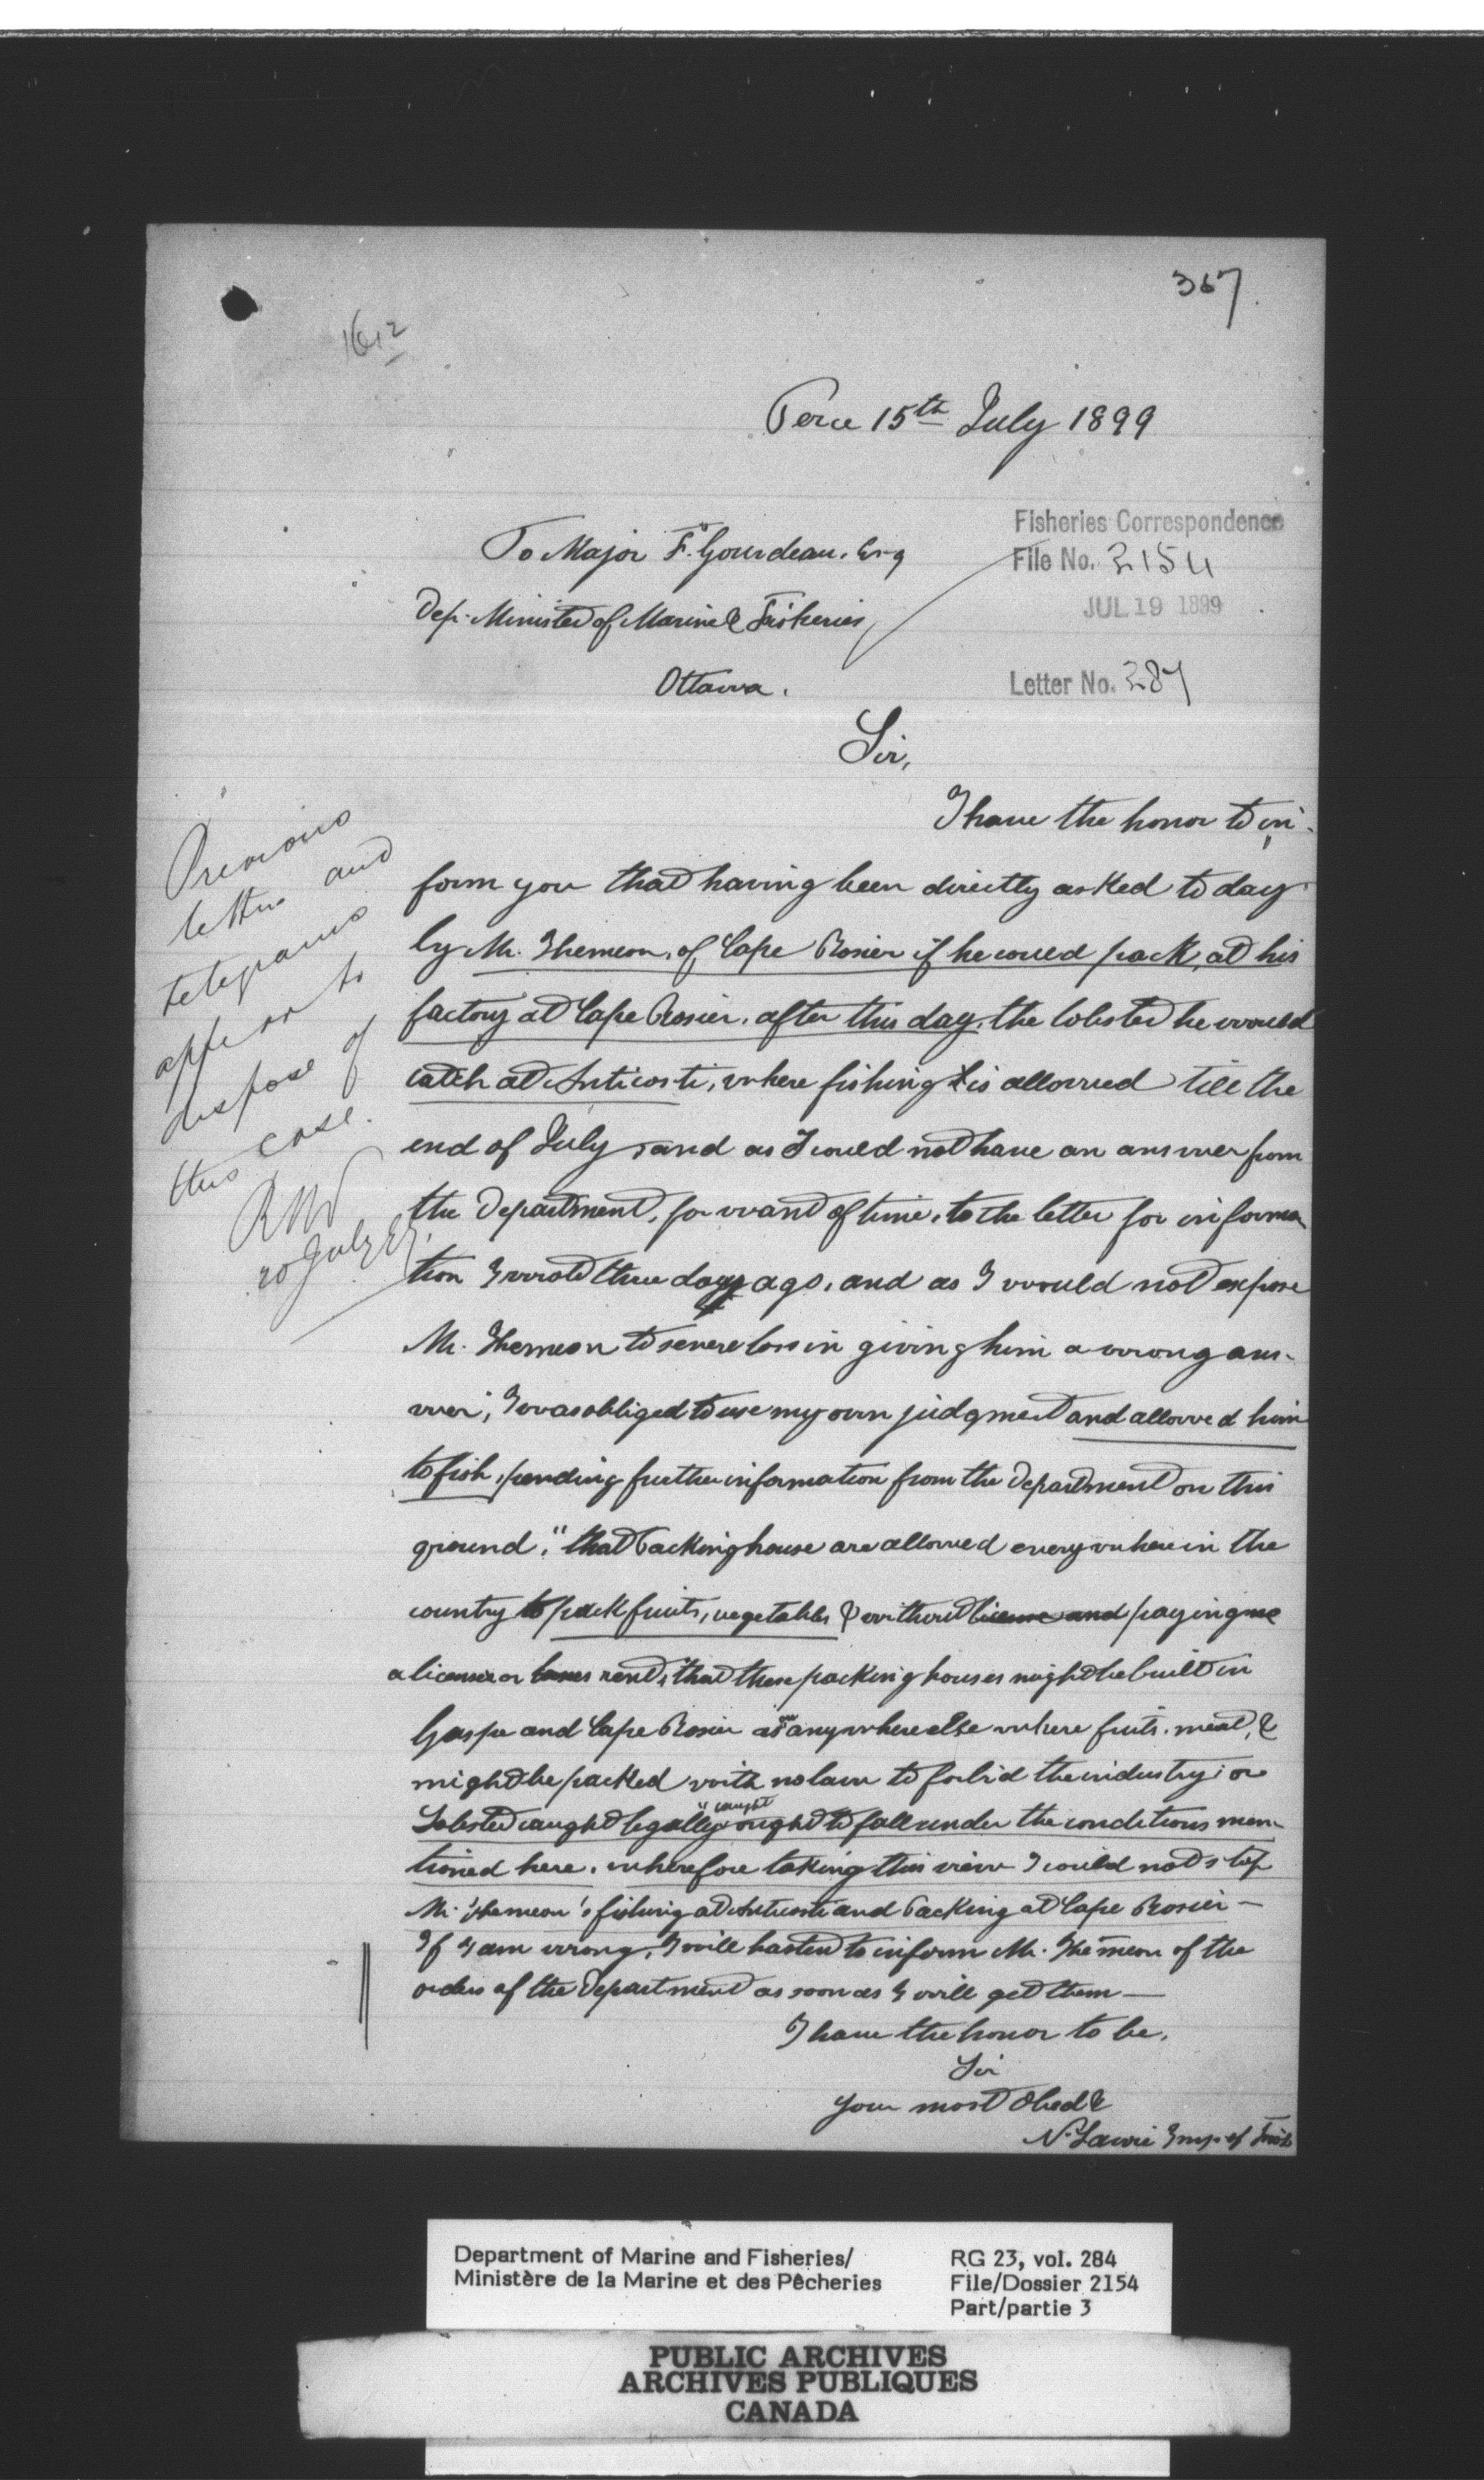 367.
1612
Perce 15th July 1899
Fisheries Correspondence
To Major F. Gourdeau. Esq
File No. 2154
JUL 19 1899
Dep. Minister of Marine & Fisheries
Ottawa.
Letter No. 287
Sir,
I have the honor to in-
form you that having been directly asked to day
by Mr. Themeon, of Cape Rosier if he could pack, at his
factory at Cape Rosier, after this day, the lobster he would
catch at Anticosti, where fishing is allowed till the
end of July, and as I could not have an answer from
the Department, for want of time, to the letter for informa
tion I wrote three days ago, and as I would not expose
Mr. Themeon to severe loss in giving him a wrong ans-
wer, I was obliged to use my own judgment and allowed him
to fish, pending further information from the Department on this
ground, "that Packing house are allowed everywhere in the
country to pack fruits, vegetables & without license and paying
a license or rent, that these packing houses might be built in
Gaspe and Cape Rosier as anywhere else where fruits, meat, &
might be packed with no law to forbid the industry; or
caught
Lobster caught legally ought to fall under the conditions men-
tioned here, wherefore taking this view I could not stop
Mr. Themeon's fishing at Anticosti and Packing at Cape Rosier —
If I am wrong, I will hasten to inform Mr. Themeon of the
orders of the Department as soon as I will get them —
I have the honor to be,
Sir
your most obed &
N. Lavoie Insp. of Fish
Previous
letters and
telegrams
appear to
dispose of
this case.
RNV
20 July 99.
Department of Marine and Fisheries/
Ministère de la Marine et des Pêcheries
RG 23, vol. 284
File/Dossier 2154
Part/partie 3
PUBLIC ARCHIVES
ARCHIVES PUBLIQUES
CANADA